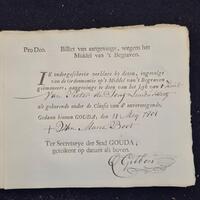 Pro Deo. Billet van aangevinge, wegens het
Middel van 't Begraven.
IK ondergeschreve verklare by desen, ingevolge
van de Ordonnantie op 't Middel van 't Begraven
geëmaneert, aangevinge te doen van het Lyk van 't kind
Jan Pieter de Jong
als gehorende onder de Classis van de onvermogende.
Gedaan binnen GOUDA, den 11 May 1801
Maria Boot
Ter Secretarye der Stad GOUDA,
getekent op datum als boven.